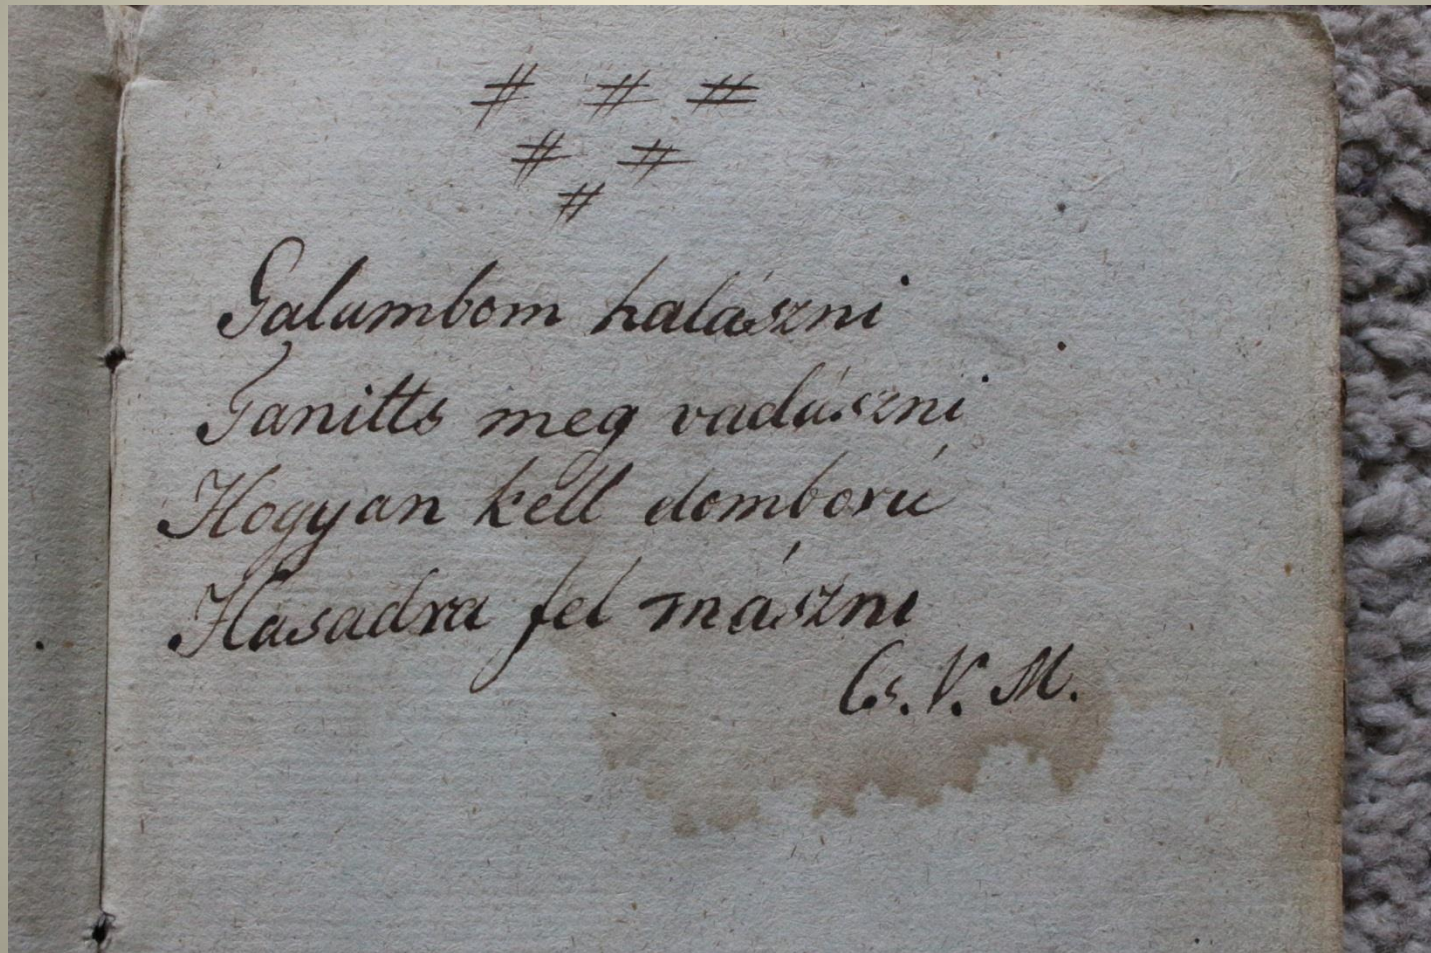 # # #
# #
#
Galambom halászni
Tanitts meg vadászni
Hogyan kell domború
Hasadra fel mászni
Cs. V. M.